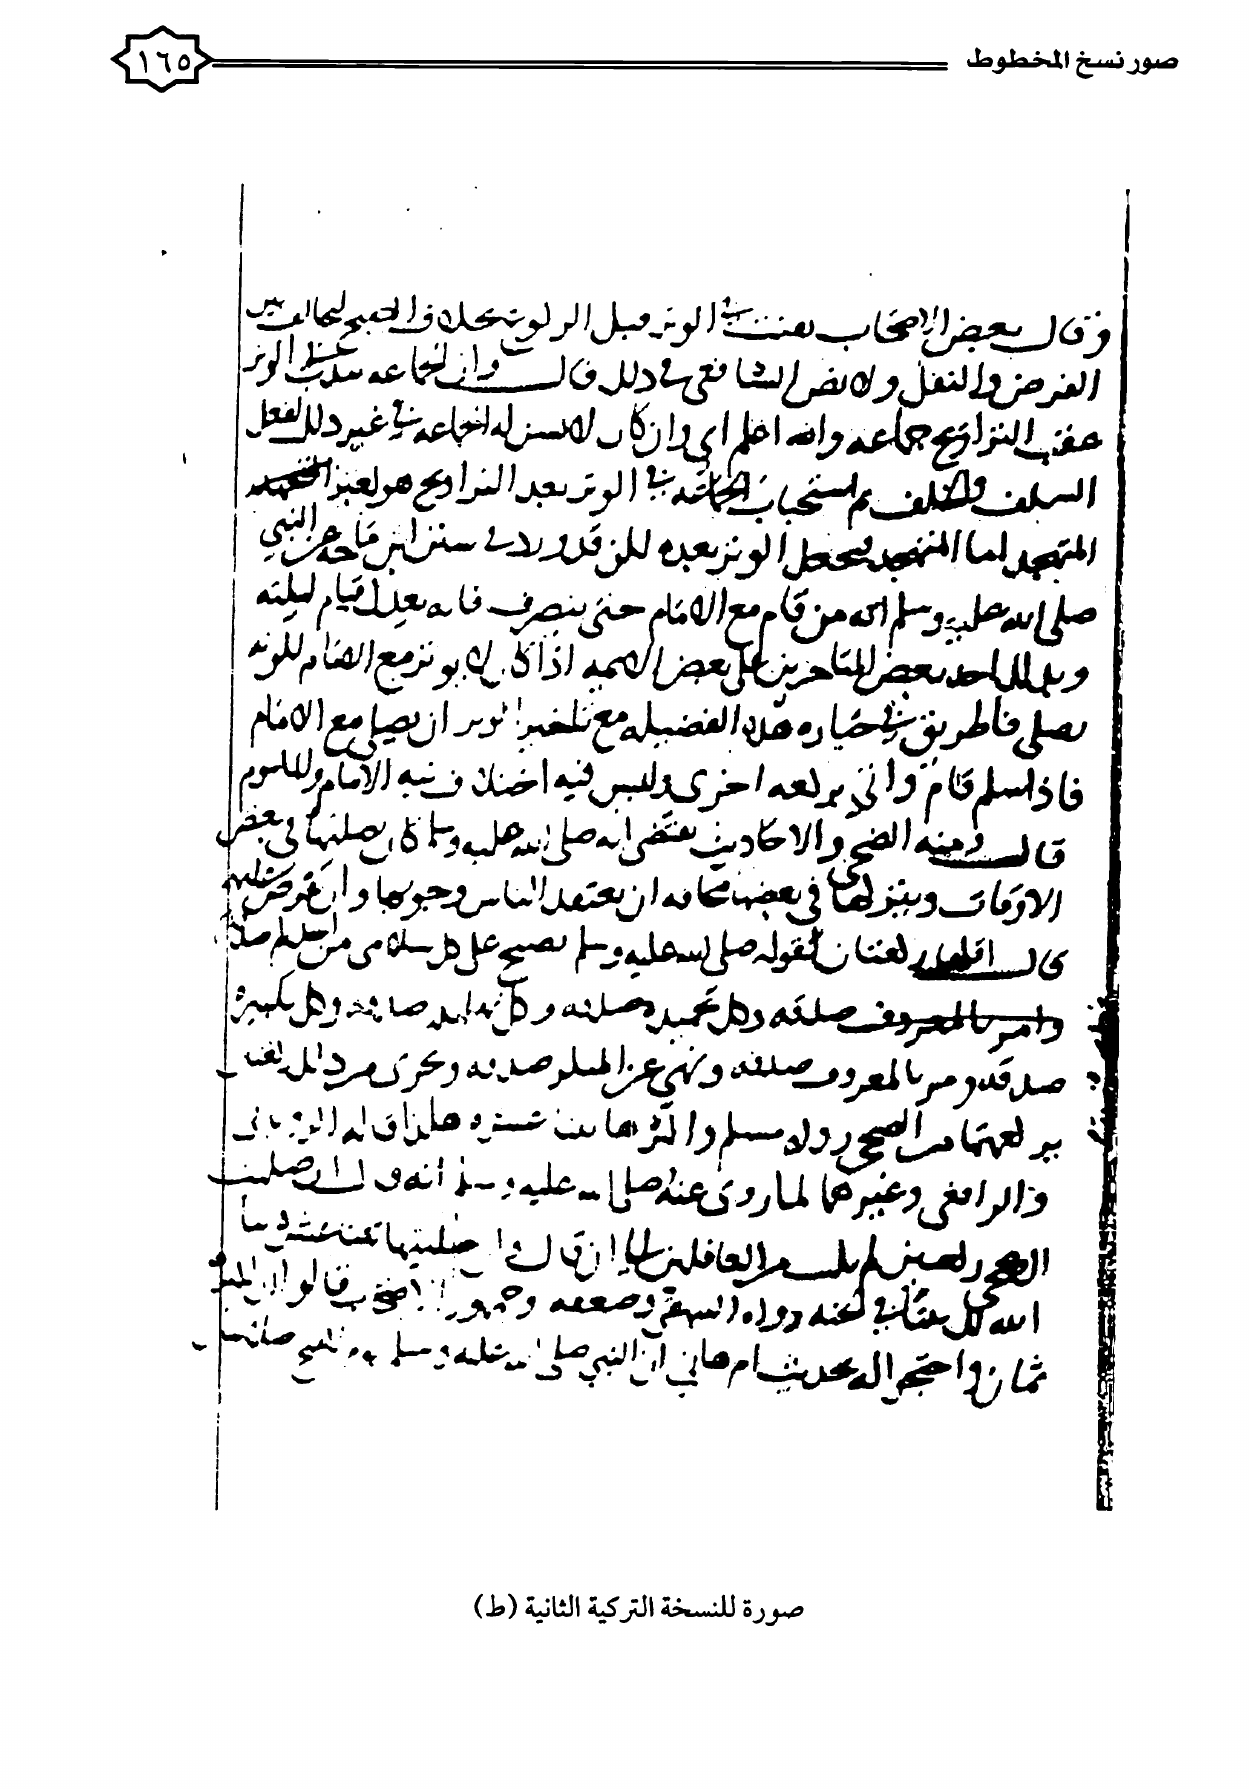 صور نسخ المخطوط
١٦٥
وقال بعض الاصحاب يقنت في الوتر قبل الركوع بخلاف الصبح ليخالف بين
الفرض والنفل ولا نص للشافعي في ذلك قال وان الجماعه تندب في الوتر
عقب التراويح جماعه والله اعلم اي وان كان لا يسن له الجماعه في غير ذلك لفعل
السلف والخلف ثم استحباب الجماعه في الوتر بعد التراويح هو لغير
المتهجد اما المتهجد فيجعل الوتر بعده لكن قد ورد في سنن ابن ماجه عن النبي
صلى الله عليه وسلم انه من قام مع الامام حتى ينصرف فانه يعدل قيام ليلته
وبذلك احد بعض المتاخرين على بعض الايمه اذا كان لا يوتر مع الامام للوتر
يصلي فاطريق في حيازه هذه الفضيله مع تاخير الوتر ان يصلي مع الامام
فاذا سلم قام واتي بركعه اخرى وليس فيه اختلاف نيه الامام والماموم
قال ومنه الضحى والاحاديث تقتضي انه صلى الله عليه وسلم كان يصليها في بعض
الاوقات ويتركها في بعضها مخافه ان يعتقد الناس وجوبها وان تفرض عليهم
قال اقلها ركعتان لقوله صلى الله عليه وسلم يصبح على كل سلامى من احدكم صدقه
وامر بالمعروف صدقه وكل تحميده صدقه وكل تهليله صدقه وكل تكبيره
صدقه وامر بالمعروف صدقه ونهي عن المنكر صدقه ويجزى من ذلك ركعتان
يركعهما من الضحى رواه مسلم واكثرها ثنتا عشره هكذا قاله الروياني
والرافعي وغيرهما لما روي عنه صلى الله عليه وسلم انه قال ان صليت
الضحى ركعتين لم تكتب من الغافلين الى ان قال وان صليتها ثنتي عشره بنا
الله لك بيتا في الجنه رواه البيهقي وضعفه وجمهور الاصحاب قالوا ان اكثرها
ثمان واحتج اله بحديث ام هاني ان النبي صلى الله عليه وسلم يوم الفتح صلى
صورة للنسخة التركية الثانية (ط)